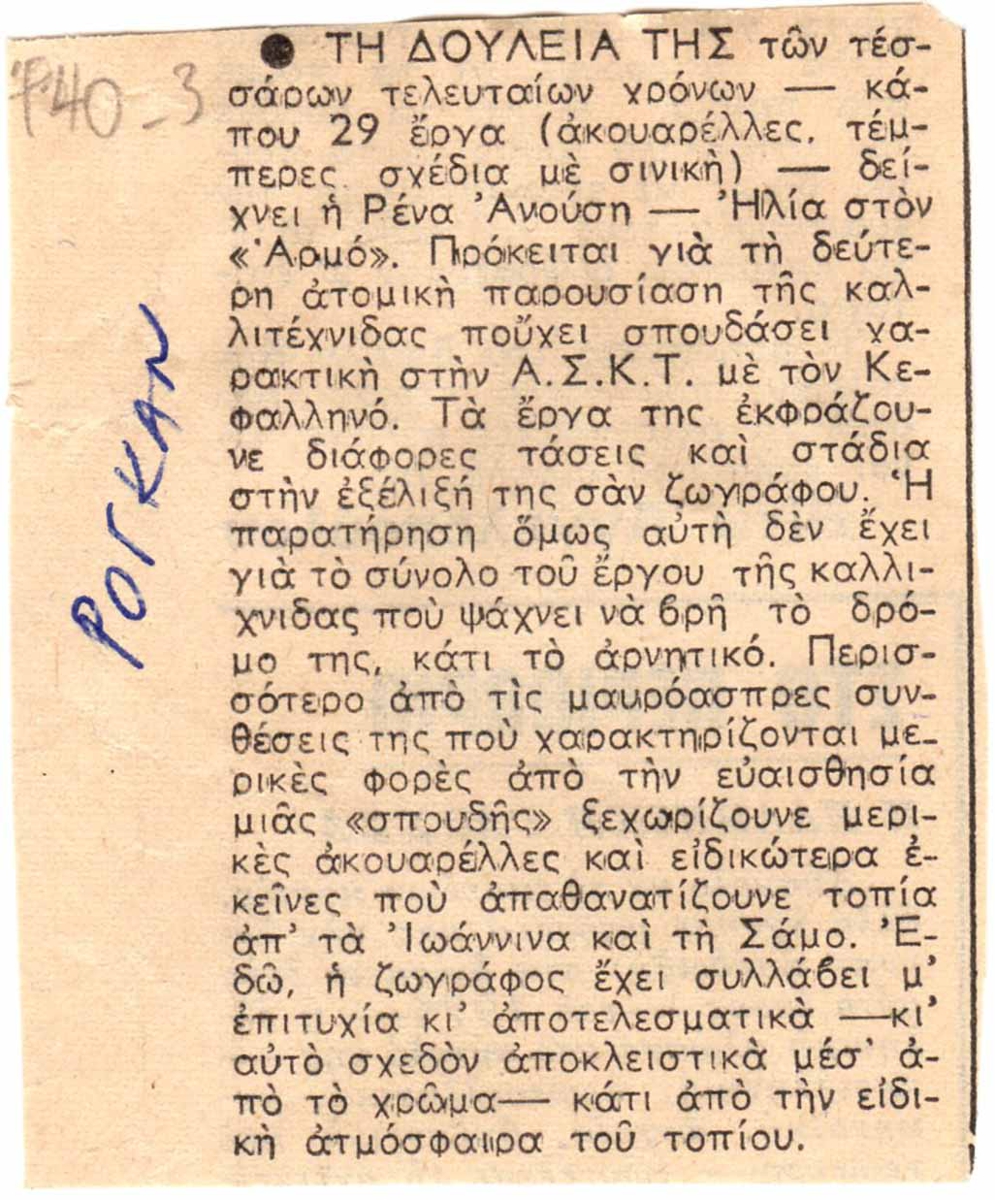 ● ΤΗ ΔΟΥΛΕΙΑ ΤΗΣ τῶν τέσ-
σάρων τελευταίων χρόνων — κά-
που 29 ἔργα (ἀκουαρέλλες, τέμ-
περες, σχέδια μὲ σινικὴ) — δεί-
χνει ἡ Ρένα Ἀνούση — Ἠλία στὸν
«Ἁρμό». Πρόκειται γιὰ τὴ δεύτε-
ρη ἀτομικὴ παρουσίαση τῆς καλ-
λιτέχνιδας ποὔχει σπουδάσει χα-
ρακτικὴ στὴν Α.Σ.Κ.Τ. μὲ τὸν Κε-
φαλληνό. Τὰ ἔργα της ἐκφράζου-
νε διάφορες τάσεις καὶ στάδια
στὴν ἐξέλιξή της σὰν ζωγράφου. Ἡ
παρατήρηση ὅμως αὐτὴ δὲν ἔχει
γιὰ τὸ σύνολο τοῦ ἔργου τῆς καλλι-
χνιδας ποὺ ψάχνει νὰ βρῆ τὸ δρό-
μο της, κάτι τὸ ἀρνητικό. Περισ-
σότερο ἀπὸ τὶς μαυρόασπρες συν-
θέσεις της ποὺ χαρακτηρίζονται με-
ρικὲς φορὲς ἀπὸ τὴν εὐαισθησία
μιᾶς «σπουδῆς» ξεχωρίζουνε μερι-
κὲς ἀκουαρέλλες καὶ εἰδικώτερα ἐ-
κεῖνες ποὺ ἀπαθανατίζουνε τοπία
ἀπ' τὰ Ἰωάννινα καὶ τὴ Σάμο. Ἐ-
δῶ, ἡ ζωγράφος ἔχει συλλάβει μ'
ἐπιτυχία κι' ἀποτελεσματικὰ —κι'
αὐτὸ σχεδὸν ἀποκλειστικὰ μέσ' ἀ-
πὸ τὸ χρῶμα— κάτι ἀπὸ τὴν εἰδι-
κὴ ἀτμόσφαιρα τοῦ τοπίου.
ΡΟΓΚΑΝ